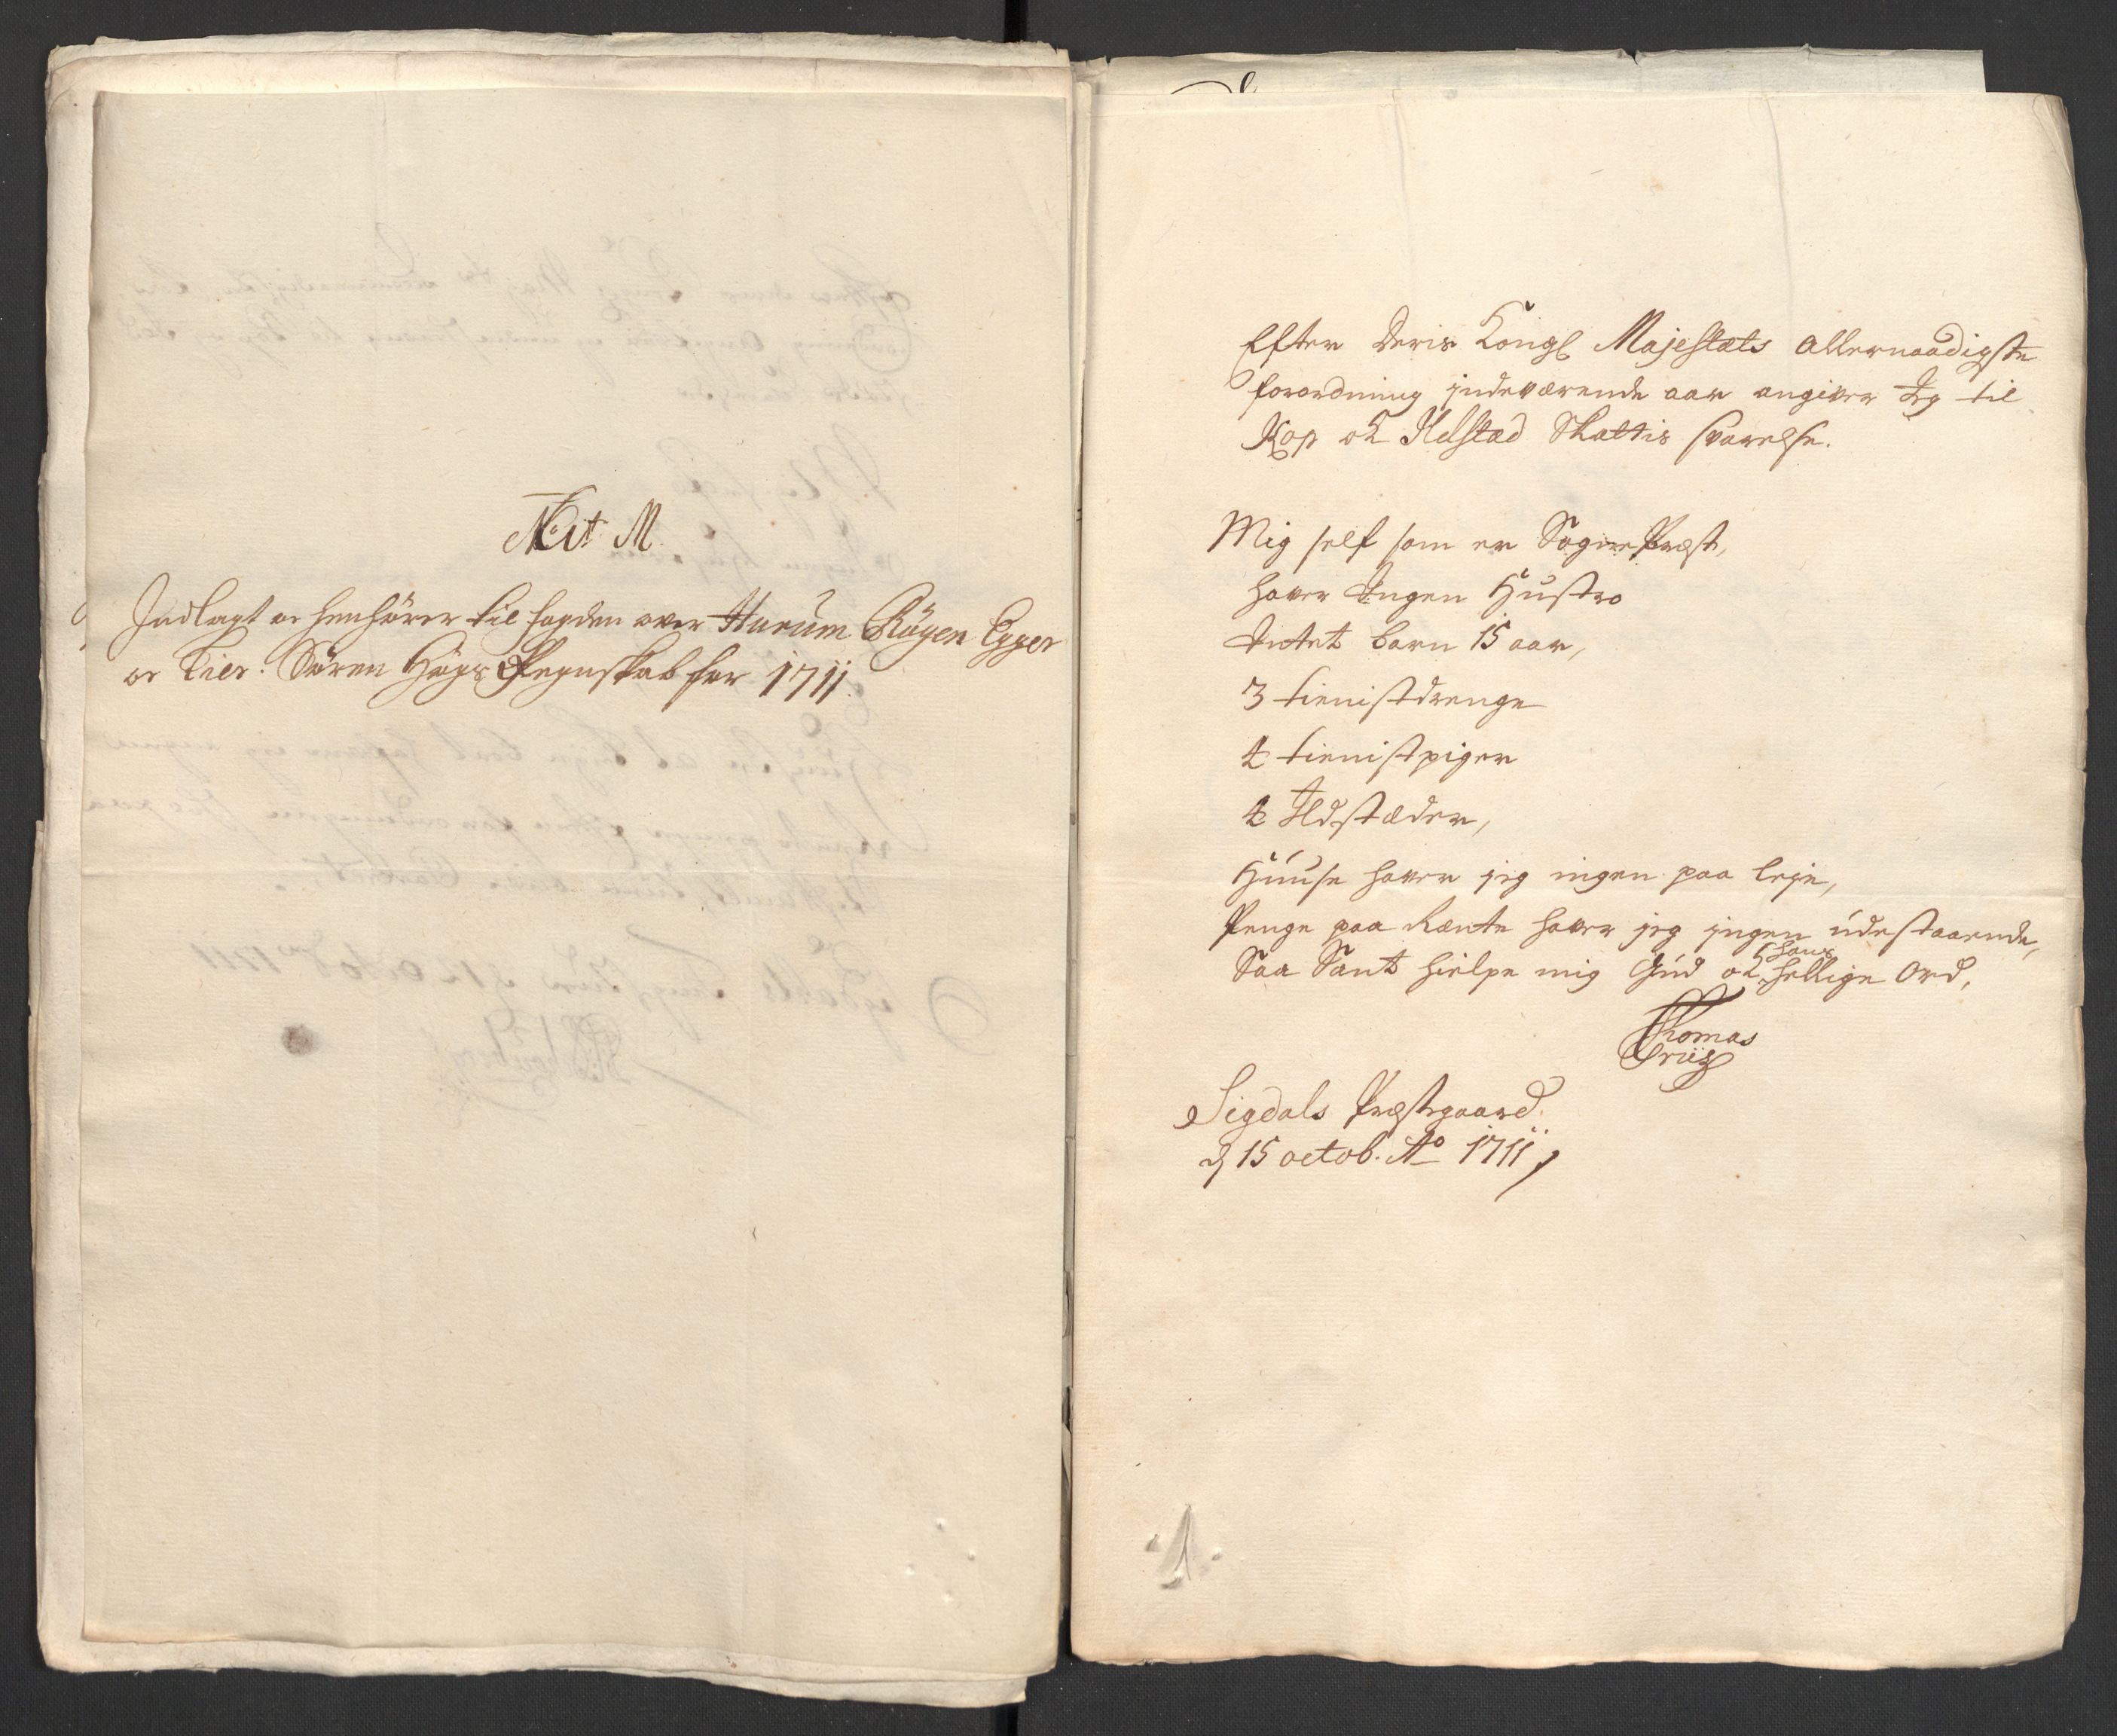 Lit M
Indlagt oc henhörer til fogden over Hurum Röyen Egger
oc Lier: Sören Högs Regnskab for 1711.
Efter Deris Kongl Majestæts allernaadigste
forordning indeværende aar angiver Jeg til
Kop oc Ildstæd Skattis svarelse.
Mig self som er SognePræst,
haver Ingen Hustro
Intet barn 15 aar,
3 tienistdrenge
4 tienistpiger
4 Ildstæder,
Huuse haver jeg ingen paa leje,
Penge paa Rænte haver jeg ingen udestaaende,
Saa Sant hielpe mig Gud oc hans hellige Ord.
Thomas
Sigdals Præstegaard.
d 15 octob. Ao 1711